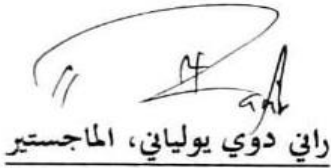 راني دوي يولياني، الماجستير